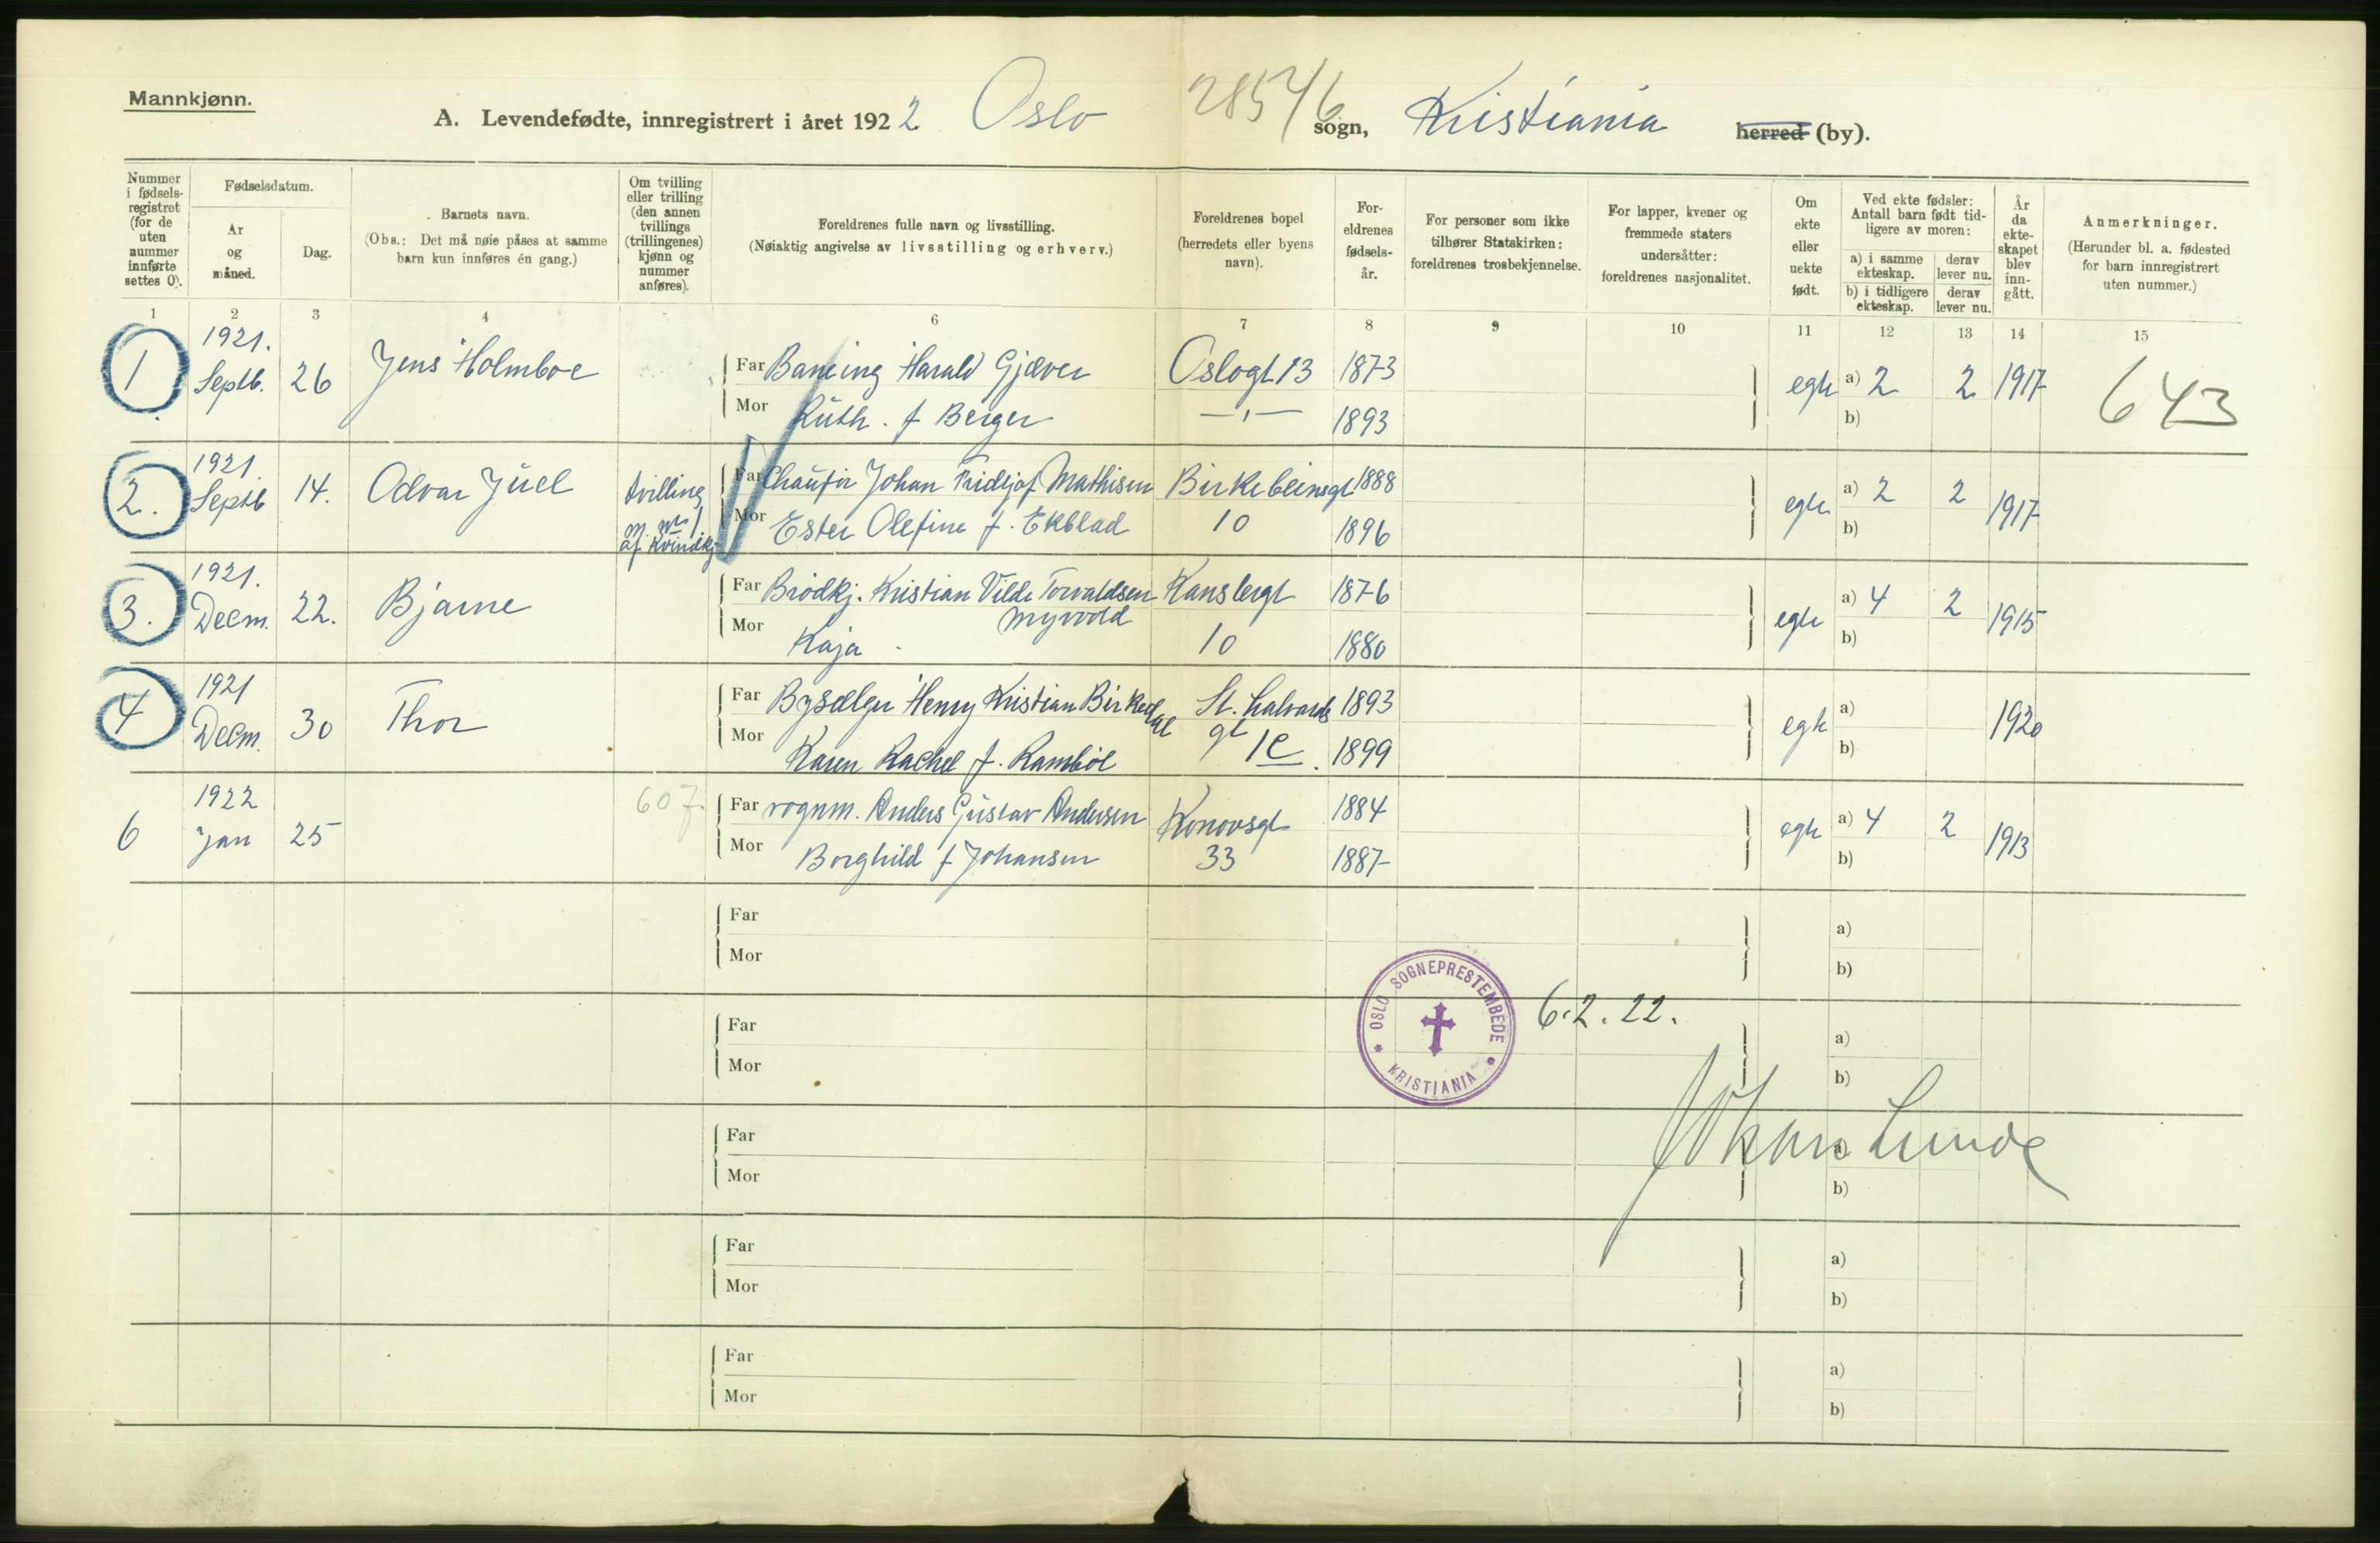 Mannkjønn.
A. Levendefødte, innregistrert i året 1922 Oslo sogn, Kristiania herred (by).
2854/6
Nummer i fødselsregistret (for de uten nummer innførte settes 0).
Fødselsdatum.
År og måned.
Dag.
Barnets navn.
(Obs.: Det må nøie påses at samme barn kun innføres én gang.)
Om tvilling eller trilling (den annen tvillings (trillingenes) kjønn og nummer anføres).
Foreldrenes fulle navn og livsstilling.
(Nøiaktig angivelse av livsstilling og erhverv.)
Foreldrenes bopel (herredets eller byens navn).
Foreldrenes fødselsår.
For personer som ikke tilhører Statskirken: foreldrenes trosbekjennelse.
For lapper, kvener og fremmede staters undersåtter: foreldrenes nasjonalitet.
Om ekte eller uekte født.
Ved ekte fødsler: Antall barn født tidligere av moren:
a) i samme ekteskap. derav lever nu.
b) i tidligere ekteskap. derav lever nu.
År da ekteskapet blev inngått.
Anmerkninger.
(Herunder bl. a. fødested for barn innregistrert uten nummer.)
1 2 3 4 6 7 8 9 10 11 12 13 14 15
1 1921. Septb. 26 Jens Holmboe Far Harald Gjæver Oslogt 13 1873 egte a) 2 2 1917 643
Mor Ruth. f Berger —"— 1893 b)
2. 1921. Septb 14. Odvar Juel tvilling m. nr 1. af kvindkj. Far Chaufør Johan Fridtjof Mathisen Birkebeinergt 1888 egte a) 2 2 1917
Mor Ester Olefine f. Ekblad 10 1896 b)
3. 1921. Decm. 22. Bjarne Far Brødkj. Kristian Vilde Torvaldsen Myrvold 1876 egte a) 4 2 1915
Mor Kaja 10 1880 b)
4 1921 Decm. 30 Thor Far Henry Kristian St. Halvards gt 1c. 1893 egte a) 1920
Mor Karen Rachel f. 1899 b)
6 1922 Jan 25 607. Far vognm. Anders Gustav Andersen Konowsgt 1884 egte a) 4 2 1913
Mor Borghild f Johansen 33 1887 b)
Far a)
Mor b)
OSLO SOGNEPRESTEMBEDE * KRISTIANIA
6.2.22.
Far a)
Mor b)
Johan Lunde
Far a)
Mor b)
Far a)
Mor b)
Far a)
Mor b)